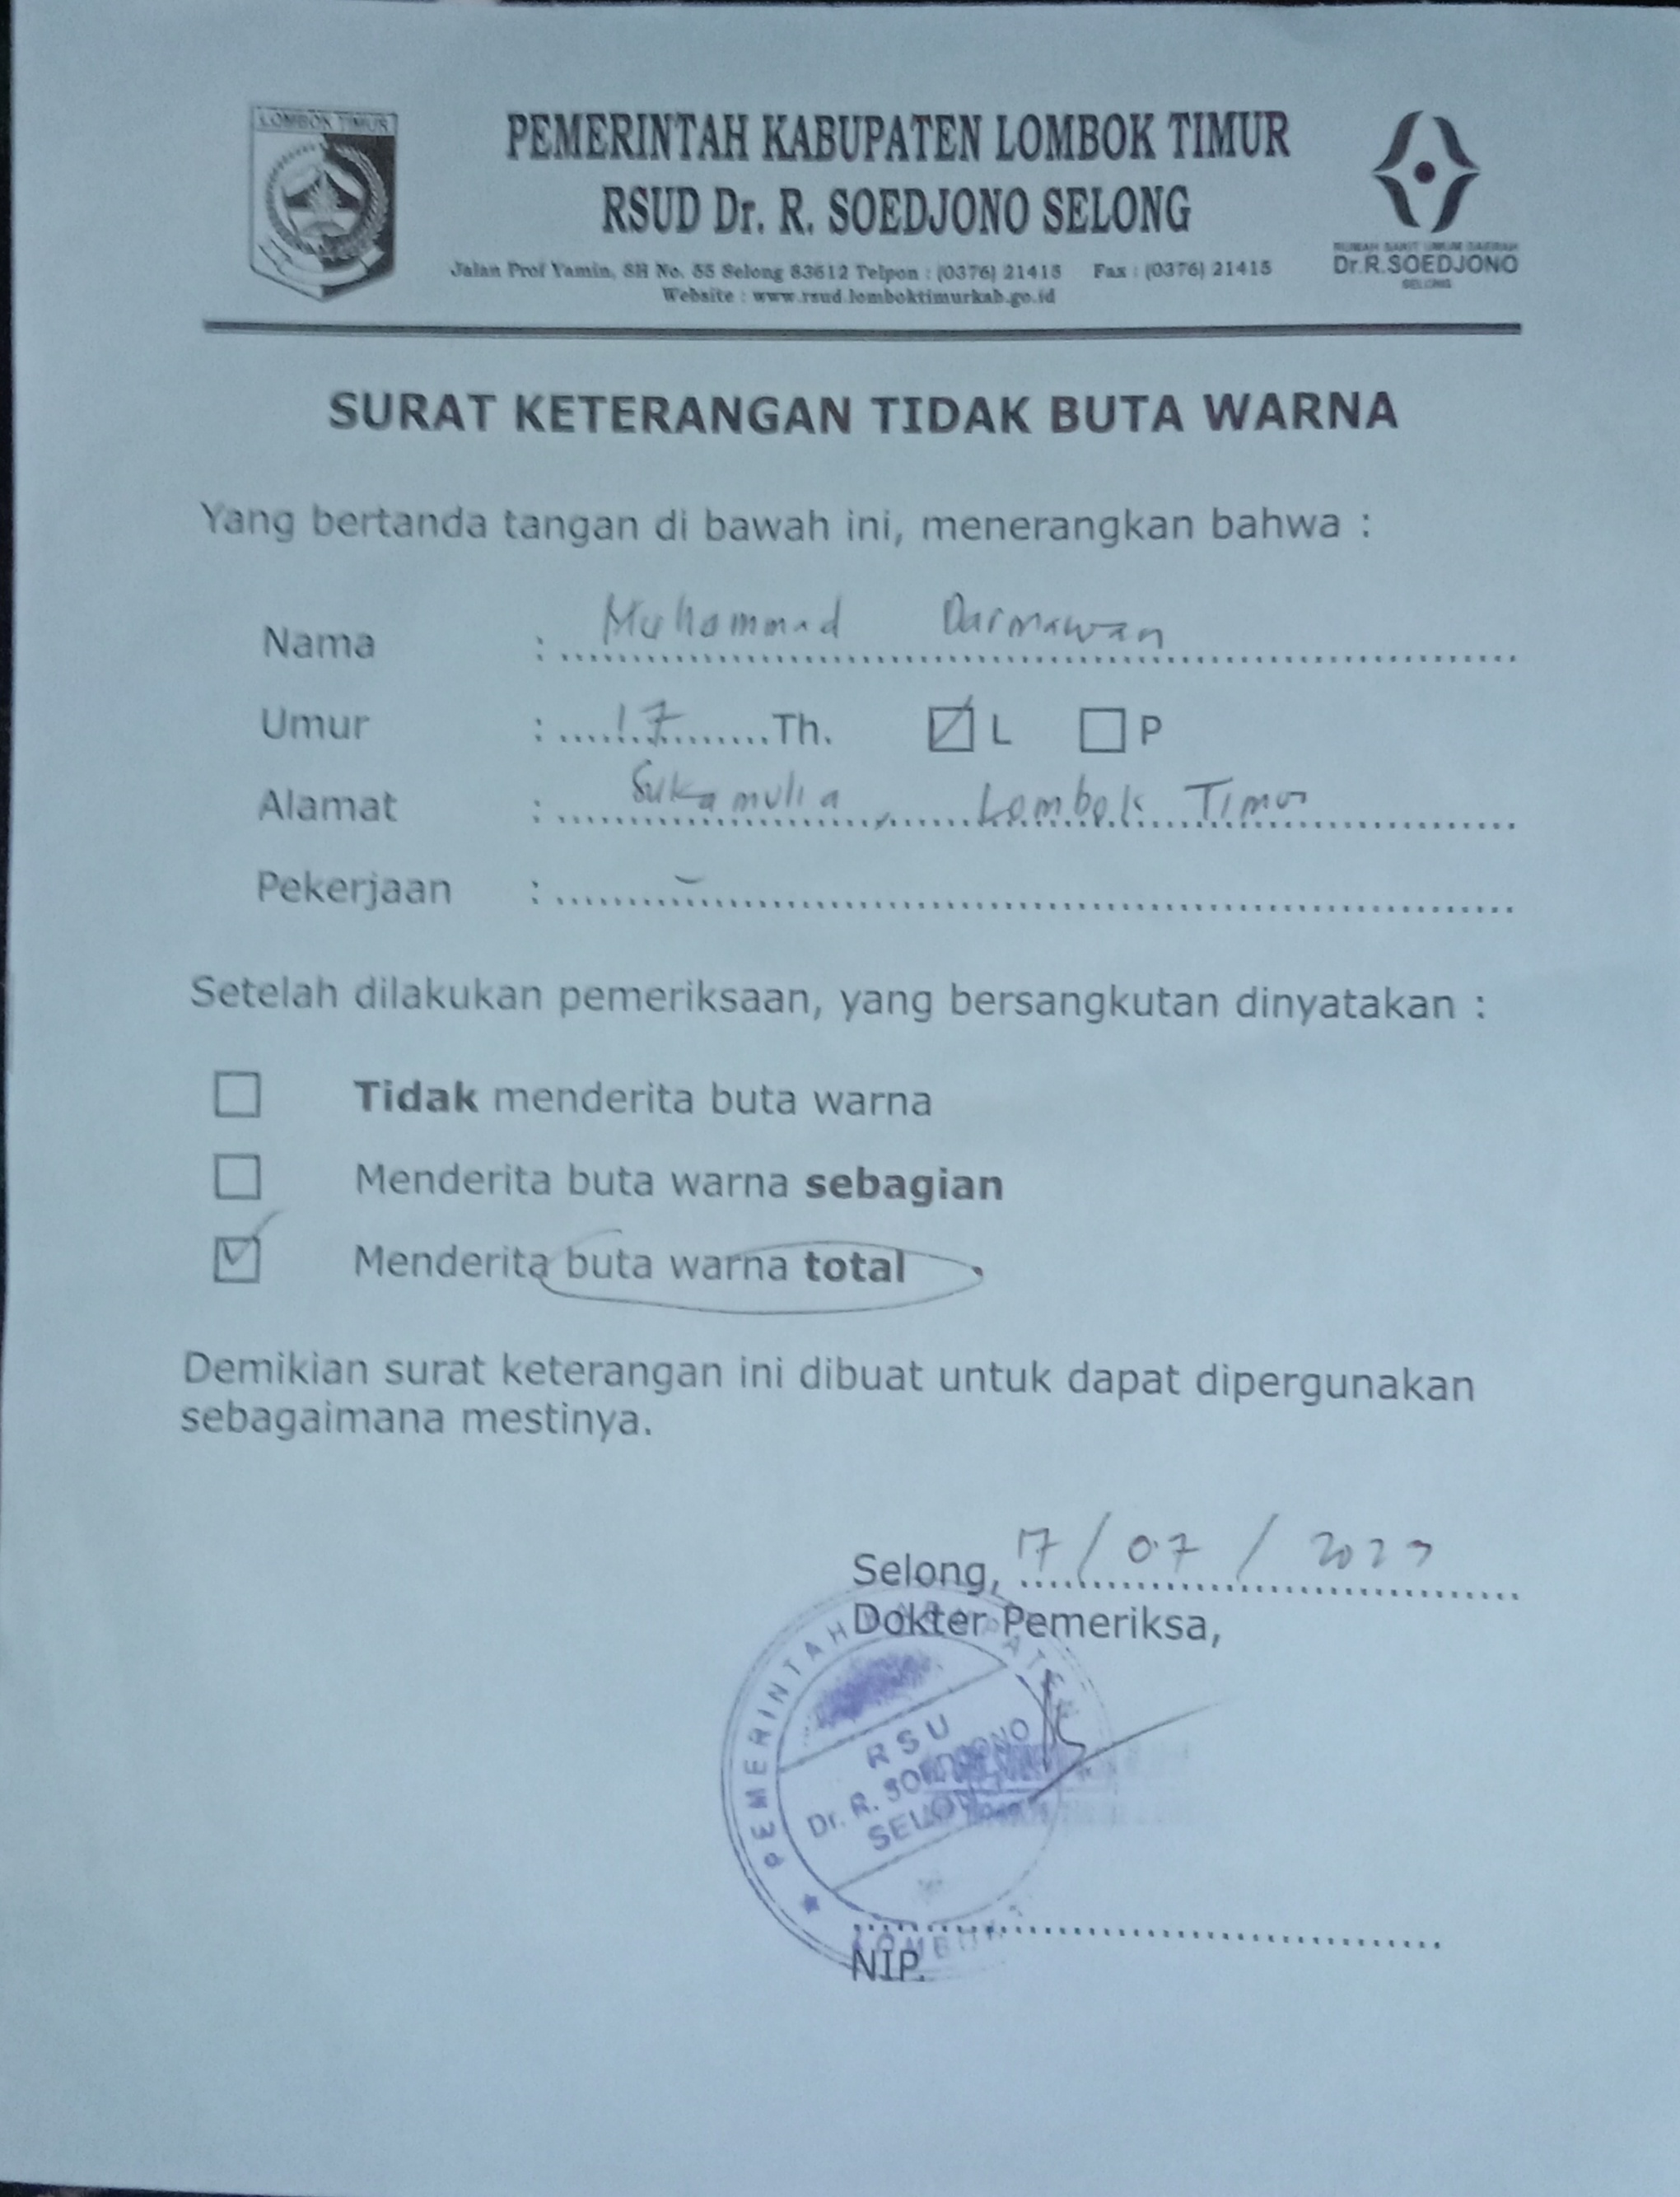 LOMBOK TIMUR
PEMERINTAH KABUPATEN LOMBOK TIMUR
RSUD Dr. R. SOEDJONO SELONG
Jalan Prof Yamin, SH No. 55 Selong 83612 Telpon : (0376) 21415 Fax : (0376) 21415
Website : www.rsud.lomboktimurkab.go.id
RUMAH SAKIT UMUM DAERAH
Dr.R.SOEDJONO
SELONG
SURAT KETERANGAN TIDAK BUTA WARNA
Yang bertanda tangan di bawah ini, menerangkan bahwa :
Nama : Muhammad Darmawan
Umur : 17 Th. L P
Alamat : Sukamulia, Lombok Timur
Pekerjaan : -
Setelah dilakukan pemeriksaan, yang bersangkutan dinyatakan :
Tidak menderita buta warna
Menderita buta warna sebagian
Menderita buta warna total
Demikian surat keterangan ini dibuat untuk dapat dipergunakan
sebagaimana mestinya.
Selong, 17 / 07 / 2023
Dokter Pemeriksa,
PEMERINTAH KABUPATEN
RSU
Dr. R. SOEDJONO
SELONG
NIP.